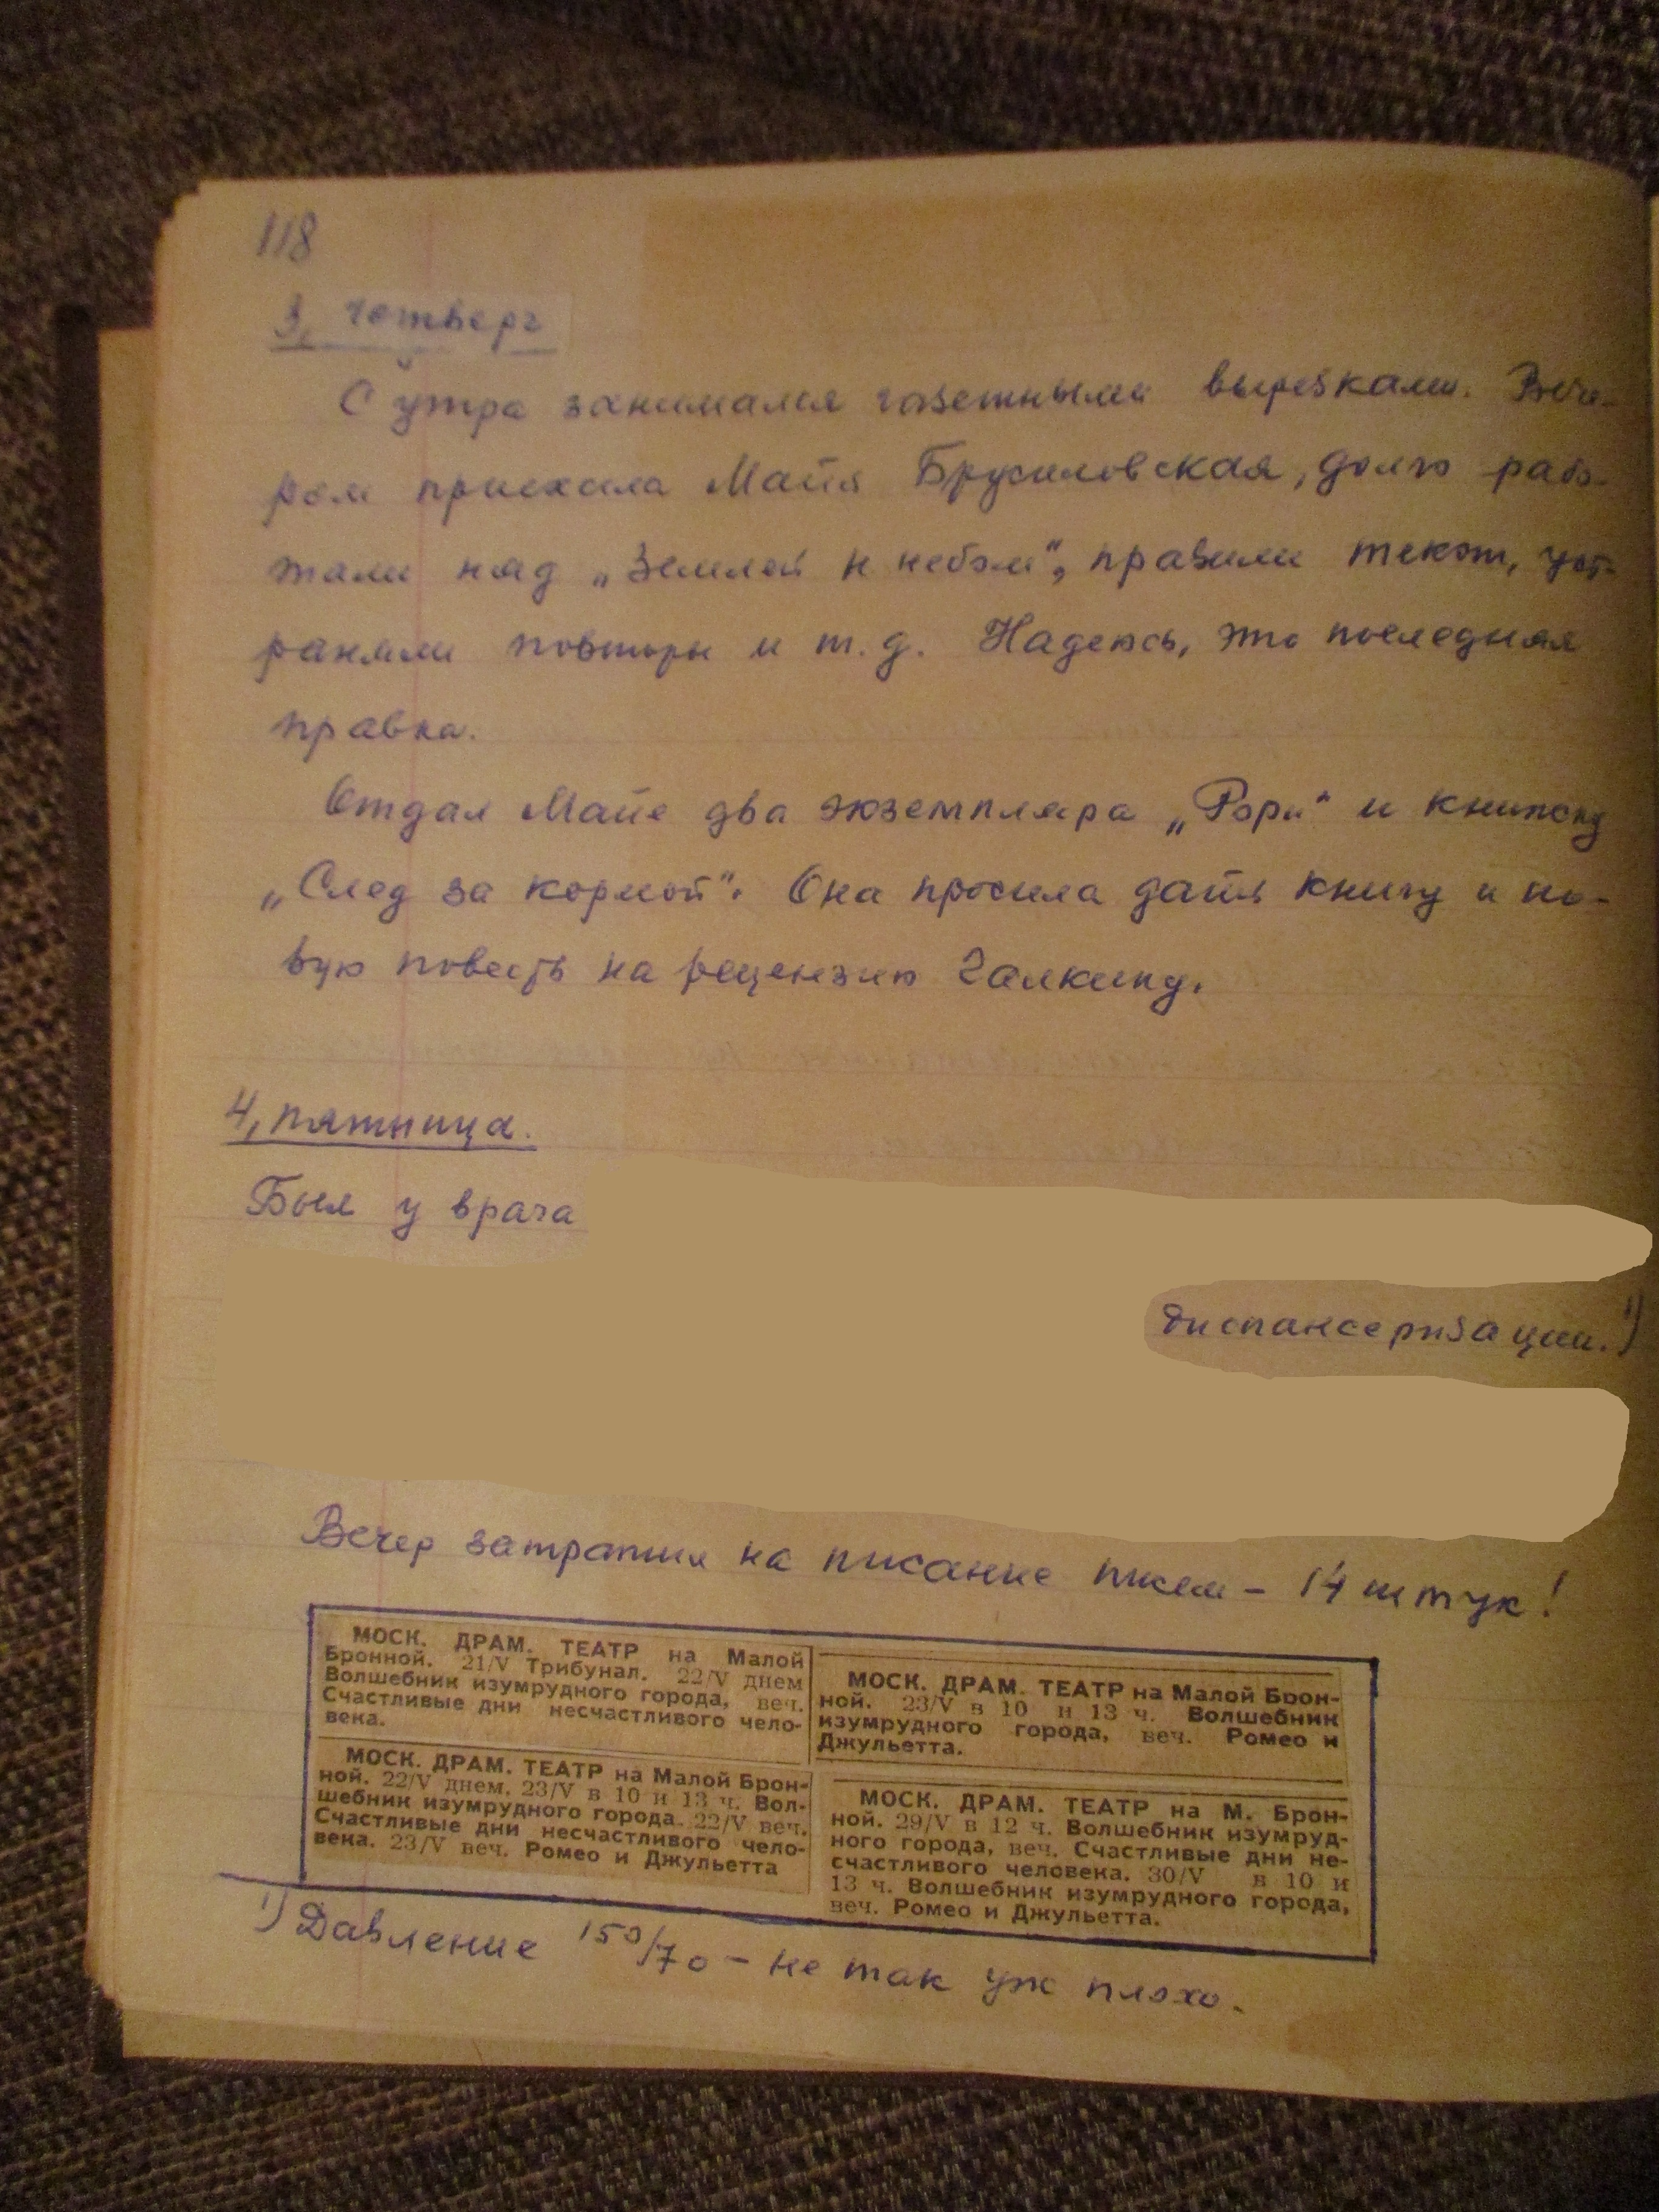 118
3, четверг
С утра занимался газетными вырезками. Вече-
ром приехала Майя Брусиловская, долго рабо-
тали над „Землей и небом", правили текст, уст-
раняли повторы и т.д. Надеюсь, это последняя
правка.
Отдал Майе два экземпляра „Рори" и книжку
„След за кормой". Она просила дать книгу и но-
вую повесть на рецензию Галкину.
4, пятница.
Был у врача
диспансеризации.1)
Вечер затратил на писание писем – 14 штук!
МОСК. ДРАМ. ТЕАТР на Малой
Бронной. 21/V Трибунал. 22/V днем
Волшебник изумрудного города, веч.
Счастливые дни несчастливого чело-
века.
МОСК. ДРАМ. ТЕАТР на Малой Брон-
ной. 22/V днем, 23/V в 10 и 13 ч. Вол-
шебник изумрудного города. 22/V веч.
Счастливые дни несчастливого чело-
века. 23/V веч. Ромео и Джульетта
МОСК. ДРАМ. ТЕАТР на Малой Брон-
ной. 23/V в 10 и 13 ч. Волшебник
изумрудного города, веч. Ромео и
Джульетта.
МОСК. ДРАМ. ТЕАТР на М. Брон-
ной. 29/V в 12 ч. Волшебник изумруд-
ного города, веч. Счастливые дни не-
счастливого человека. 30/V в 10 и
13 ч. Волшебник изумрудного города,
веч. Ромео и Джульетта.
1) Давление 150/70 – не так уж плохо.